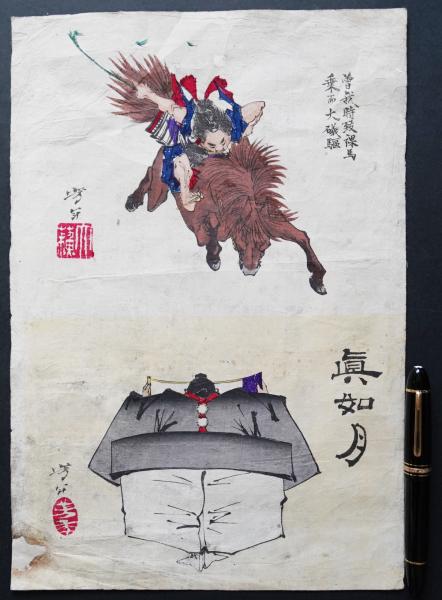 曽我時致裸馬
乗而大磯駆
芳年
眞如月
芳年